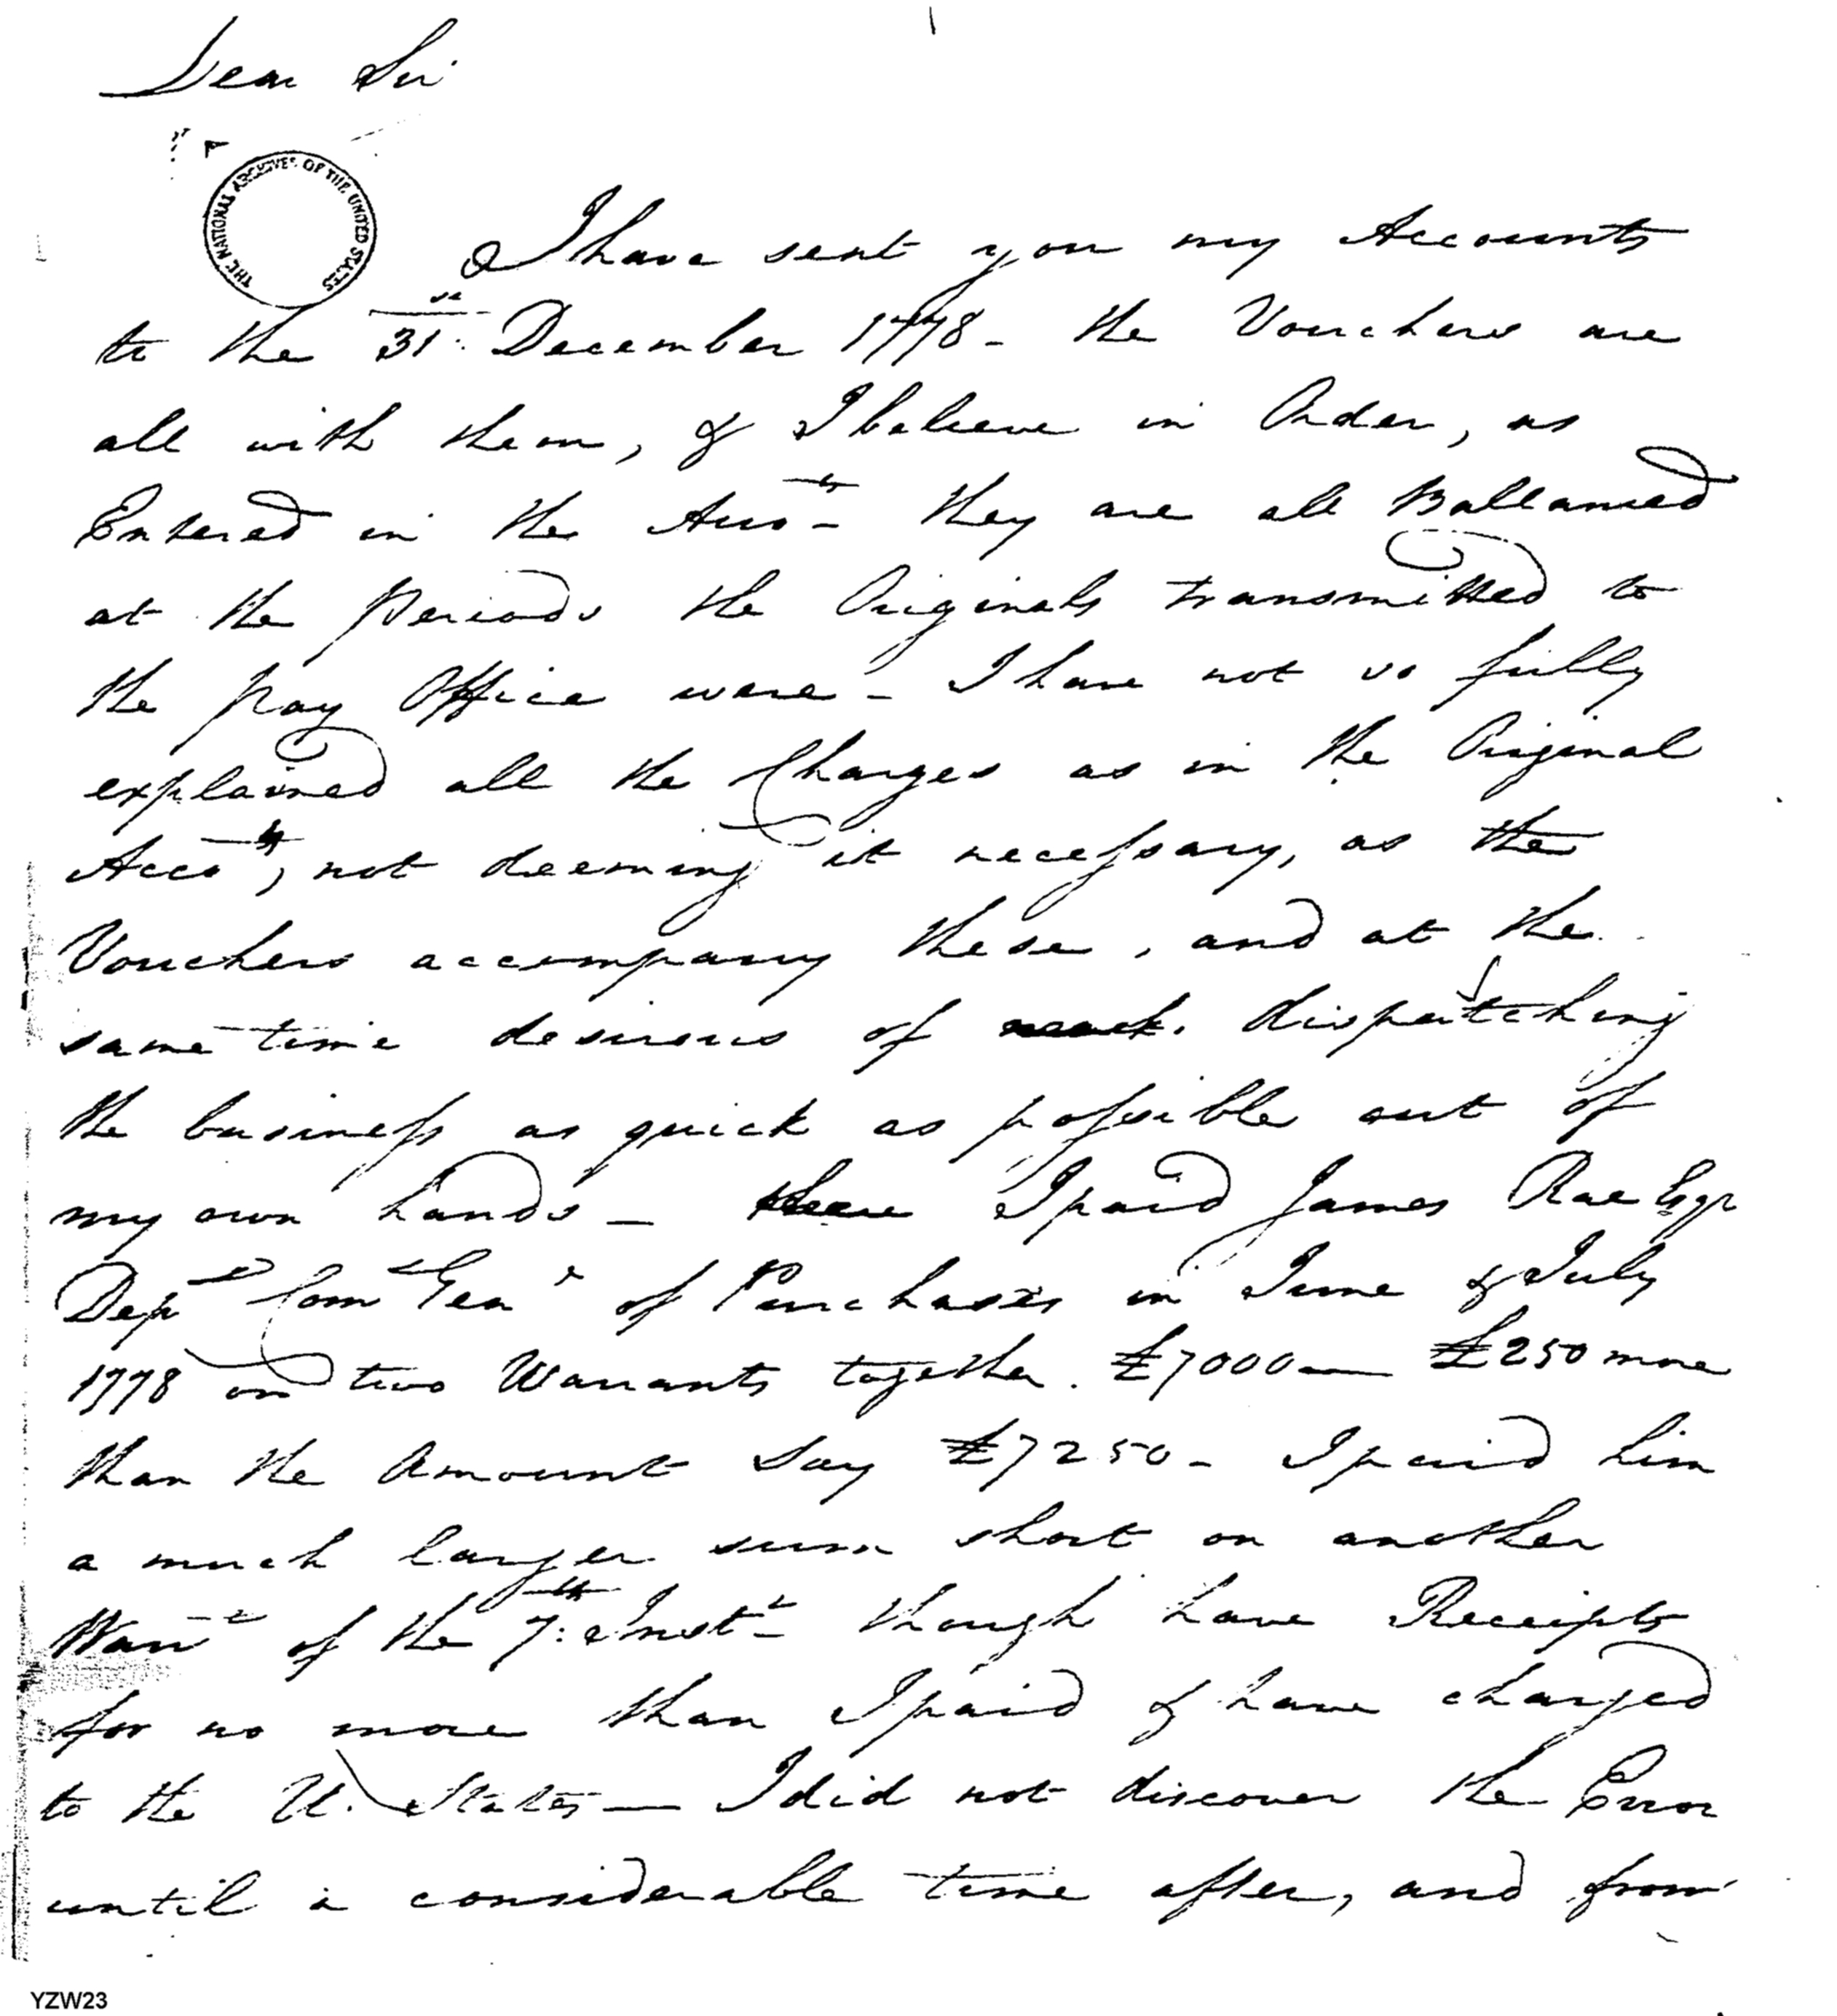 Dear Sir
THE NATIONAL ARCHIVES OF THE UNITED STATES
I have sent you my Accounts
to the 31st December 1778 - the Vouchers are
all with them, & I beleeve in Order, as
Entered in the Accots - they are all Ballanced
at the Periods the Originals transmitted to
the pay Office were - I have not so fully
explained all the Charges as in the Original
Accots, not deeming it necessary, as the
Vouchers accompany these, and at the
same time desirous of dispatching
the business as quick as possible out of
my own hands - I paid James Rae Esqr
Depy Com Genl of Purchases in June & July
1778 on two Warrants together. £7000 — £250 more
than the Amount say £7250 - I paid him
a much larger sum short on another
Warrt of the 7th Instt though have Receipts
for no more than I paid & have charged
to the U. States — I did not discover the Error
until a considerable time after, and from
YZW23